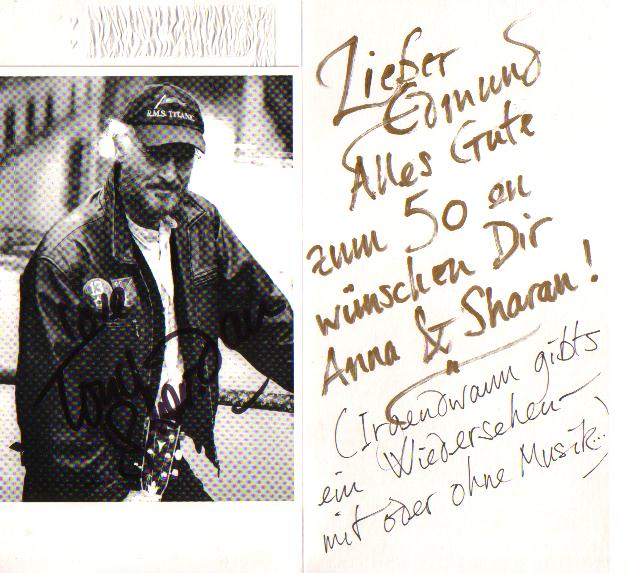 R.M.S. TITANIC
13
Love
Lieber
Edmund
Alles Gute
zum 50 en
wünschen Dir
Anna & Sharan!
(Irgendwann gibts
ein Wiedersehen-
mit oder ohne Musik..)